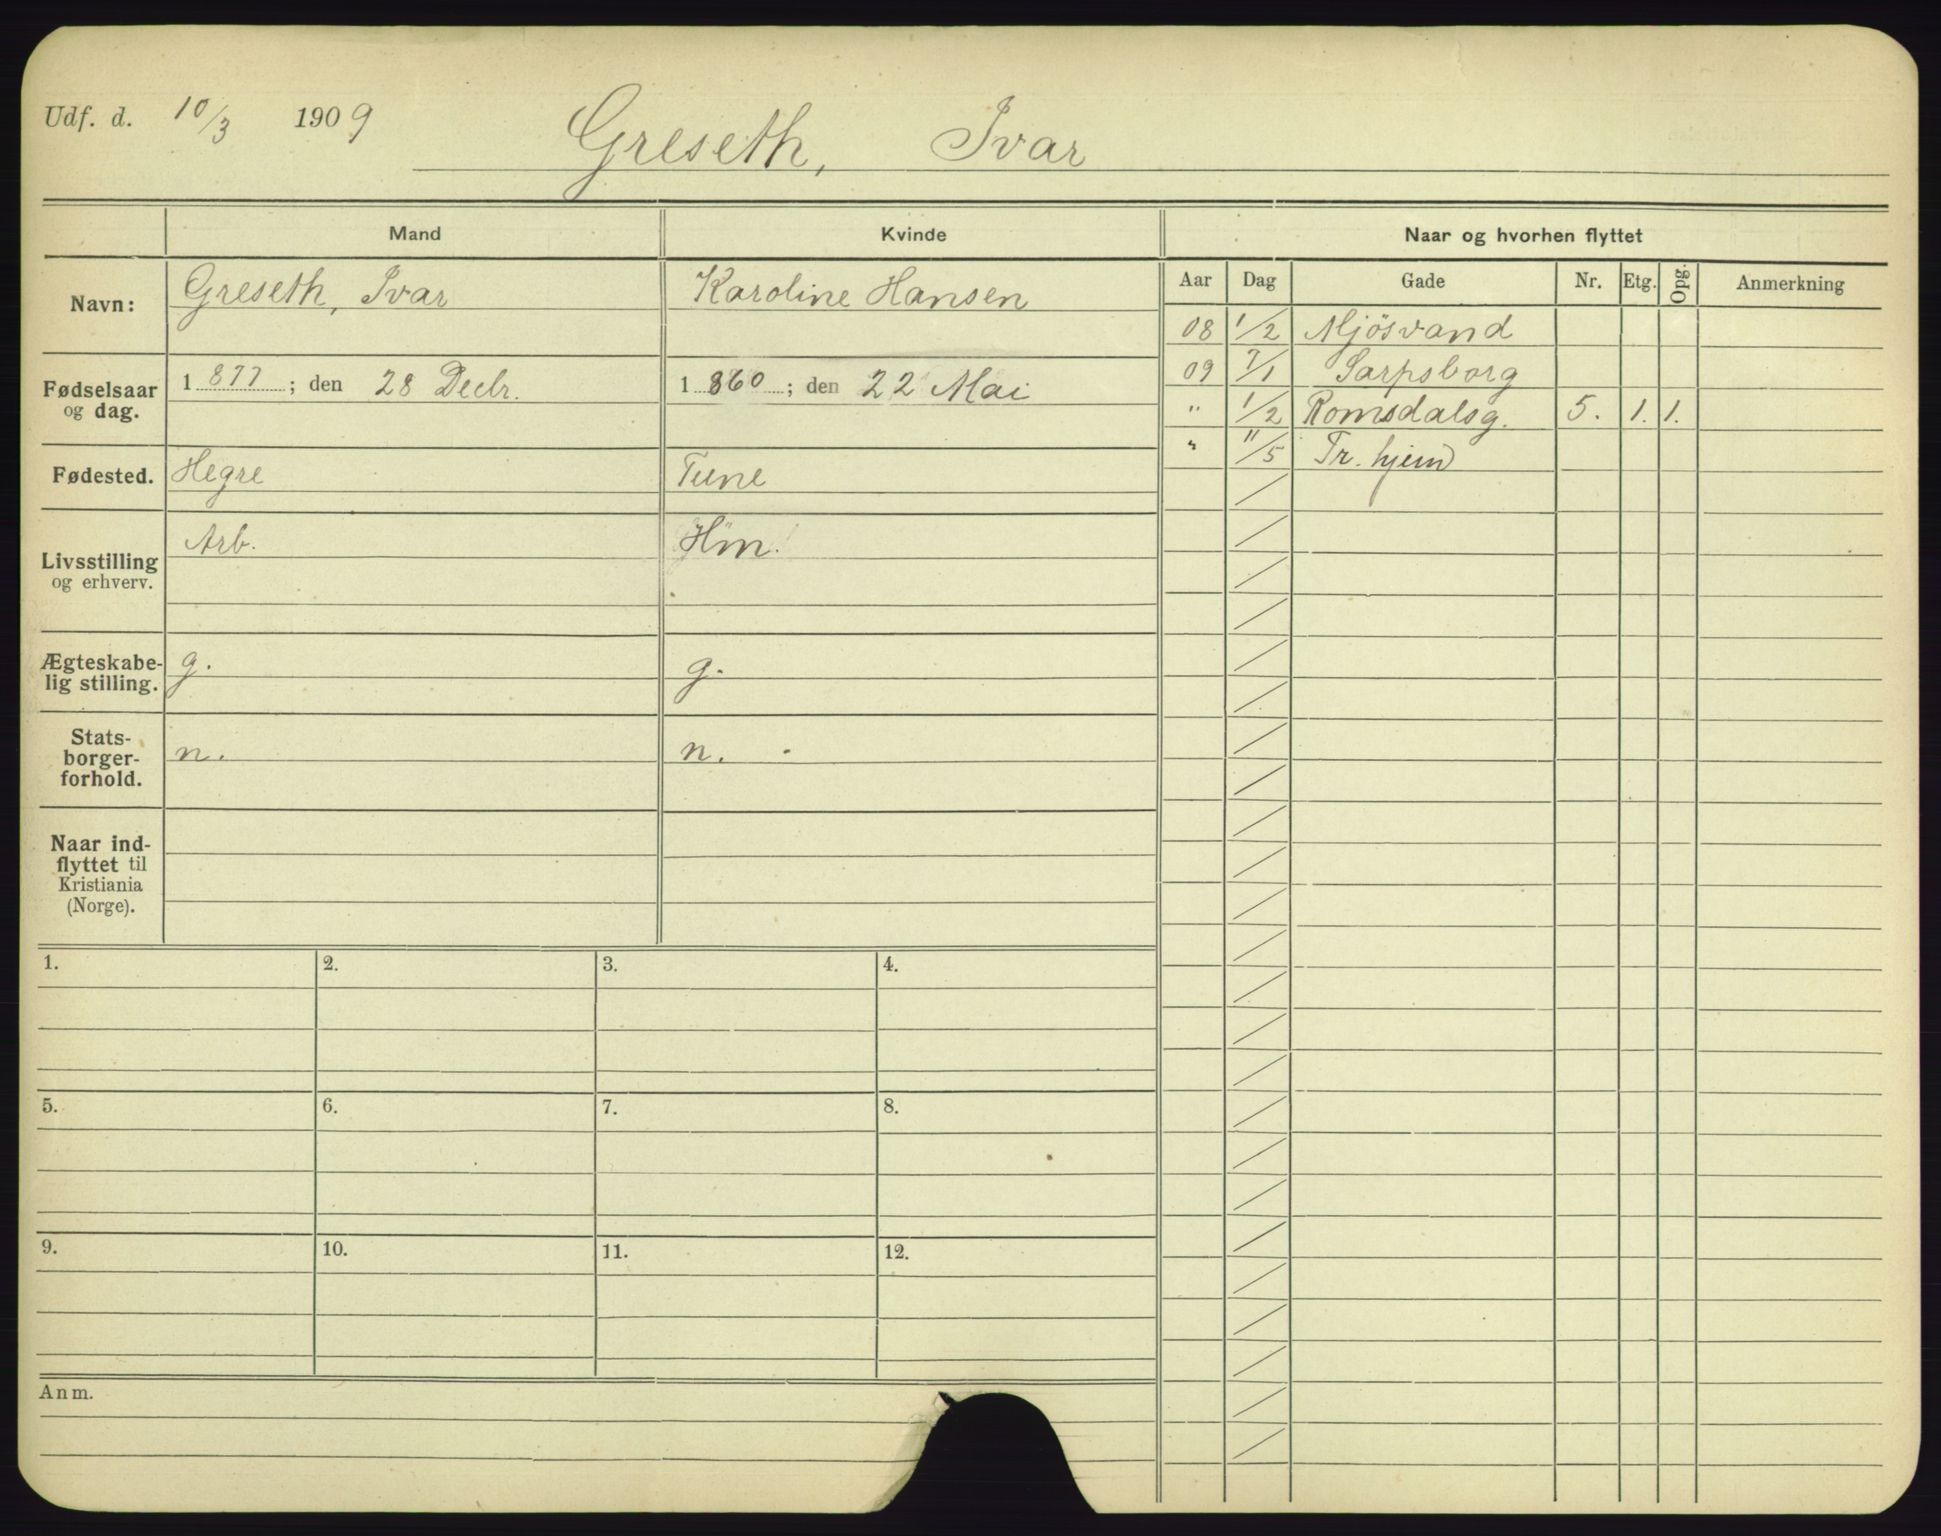 Udf. d. 10/3 1909
Greseth, Ivar
Mand Kvinde Naar og hvorhen flyttet
Navn: Greseth, Ivar Karoline Hansen
Aar Dag Gade Nr. Etg. Opg. Anmerkning
08 1/2 Mjösvand
09 7/1 Sarpsborg
" 1/2 Romsdalsg. 5. 1. 1.
" 11/5 Tr. hjem
Fødselsaar
og dag.
1877; den 28 Decbr. 1860; den 22 Mai
Fødested. Hegre Tune
Livsstilling
og erhverv.
Arb. Hm.
Ægteskabe-
lig stilling.
g. g.
Stats-
borger-
forhold.
n. n.
Naar ind-
flyttet til
Kristiania
(Norge).
1. 2. 3. 4.
5. 6. 7. 8.
9. 10. 11. 12.
Anm.